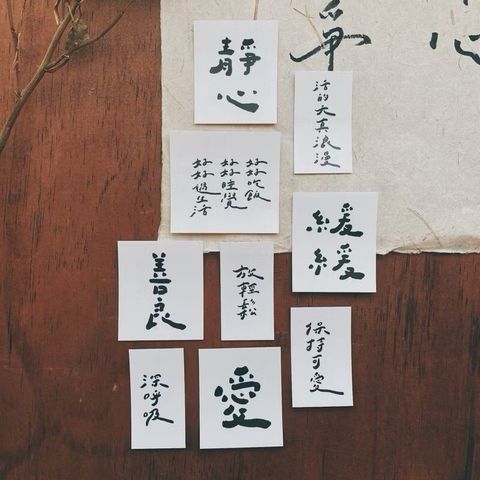 靜心
活的天真浪漫
好好吃飯
好好睡覺
好好過生活
緩緩
善良
放輕鬆
保持可愛
深呼吸
愛